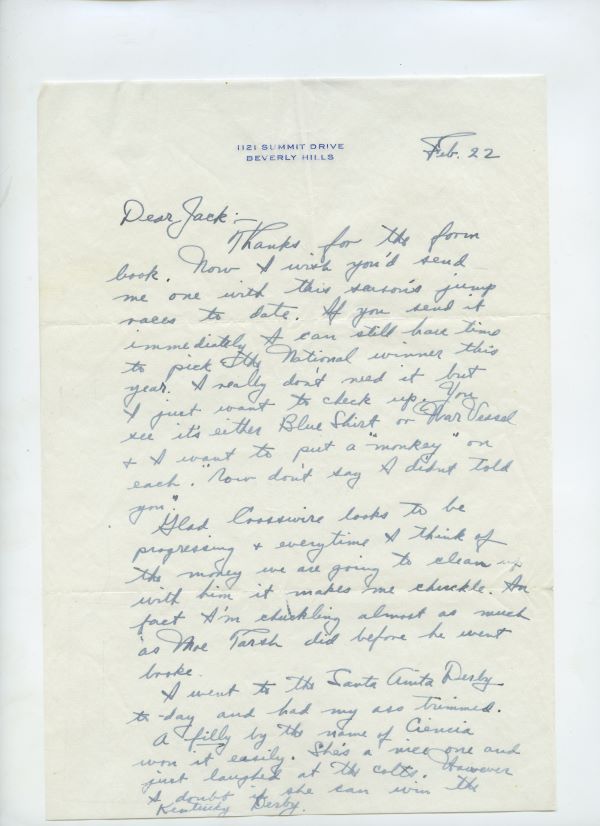 1121 SUMMIT DRIVE
BEVERLY HILLS
Feb. 22
Dear Jack:-
Thanks for the form
book. Now I wish you'd send
me one with this season's jump
races to date. If you send it
immediately I can still have time
to pick the National winner this
year. I really don't need it but
I just want to check up. You
see it's either Blue Shirt or War Vessel
& I want to put a "monkey" on
each. "Now don't say I didn't told
you".
Glad Crosswire looks to be
progressing & everytime I think of
the money we are going to clean up
with him it makes me chuckle. In
fact I'm chuckling almost as much
as Moe Tarsh did before he went
broke.
I went to the Santa Anita Derby
to-day and had my ass trimmed.
A filly by the name of Ciencia
won it easily. She's a nice one and
just laughed at the colts. However
I doubt if she can win the
Kentucky Derby.